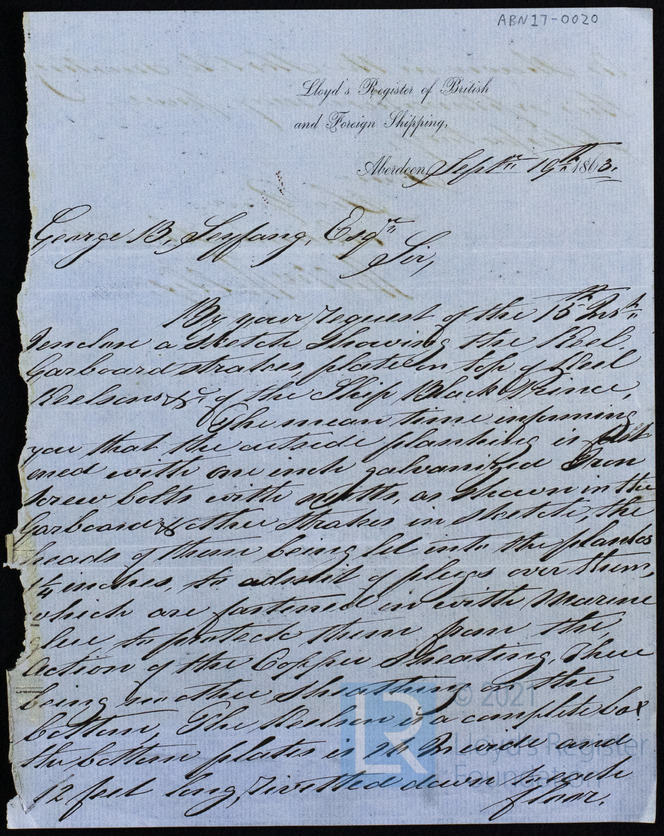 ABN17-0020
Lloyd's Register of British
and Foreign Shipping,
Aberdeen, Septr 19th 1863.
George B. Seyfang, Esqre
Sir,
By your request of the 15th Inst
I enclose a sketch showing the Keel.
Garboard strakes, plate on top of Keel
Keelson &c of the Ship Black Prince,
The mean time informing
you that the outside planking is
ened with one inch galvanized Iron
Screw bolts with nutts, as shown in the
Garboard & other strakes in sketch, the
heads of them being let into the planks
1/4 inches, to admit of plugs over them,
which are fastened in with Marine
Glue to protect them from the
Action of the Copper Sheating, There
being no other Sheathing on the
bottom, The Keelson is a complete box
the bottom plates is 24 In wide and
12 feet long, rivetted down to each
floor.
© 2021
LR
Lloyd's Register
Foundation